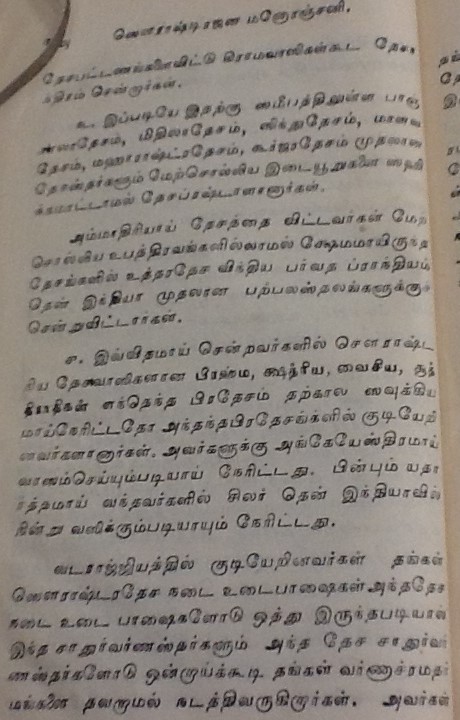 ஸௌராஷ்டிரஜன மனோரஞ்சனி.
தேசபட்டணங்களைவிட்டு கிராமவாஸிகள்கூட தேசா
ந்திரம் சென்றார்கள்.
உ. இப்படியே இதற்கு ஸமீபத்திலுள்ள பாஞ்
சாலதேசம், மிதிலாதேசம், ஸிந்துதேசம், மாளவ
தேசம், மஹாராஷ்ட்ரதேசம், கூர்ஜரதேசம் முதலான
தேசஸ்தர்களும் மேற்சொல்லிய இடையூறுகளை ஸஹி
க்கமாட்டாமல் தேசப்ரஷ்டாளானார்கள்.
அம்மாதிரியாய் தேசத்தை விட்டவர்கள் மேற்
சொல்லிய உபத்திரவங்களில்லாமல் க்ஷேமமாயிருந்த
தேசங்களில் உத்தரதேச விந்திய பர்வத ப்ராந்தியம்
தென் இந்தியா முதலான பற்பலஸ்தலங்களுக்குச்
சென்றுவிட்டார்கள்.
௩. இவ்விதமாய் சென்றவர்களில் சௌராஷ்ட்
ரிய தேசவாஸிகளான பிரஹ்ம, க்ஷத்ரீய, வைசிய, சூத்
திராதிகள் எந்தெந்த பிரதேசம் தற்கால ஸவுக்கிய
மாய்நேரிட்டதோ அந்தந்தபிரதேசங்களில் குடியேறி
னவர்களானார்கள். அவர்களுக்கு அங்கேயேஸ்திரமாய்
வாஸம்செய்யும்படியாய் நேரிட்டது. பின்பும் யதா
ர்த்தமாய் வந்தவர்களில் சிலர் தென் இந்தியாவில்
நின்று வஸிக்கும்படியாயும் நேரிட்டது.
வடராஜ்ஜியத்தில் குடியேறினவர்கள் தங்கள்
ஸௌராஷ்டரதேச நடை உடைபாஷைகள்அந்ததேச
நடை உடை பாஷைகளோடு ஒத்து இருந்தபடியால்
இந்த சாதுர்வர்ணஸ்தர்களும் அந்த தேச சாதுர்வர்
ணஸ்தர்களோடு ஒன்றாய்க்கூடி தங்கள் வர்ணாச்ரமதர்
மங்களை தவறாமல் நடத்திவருகிறார்கள். அவர்கள்